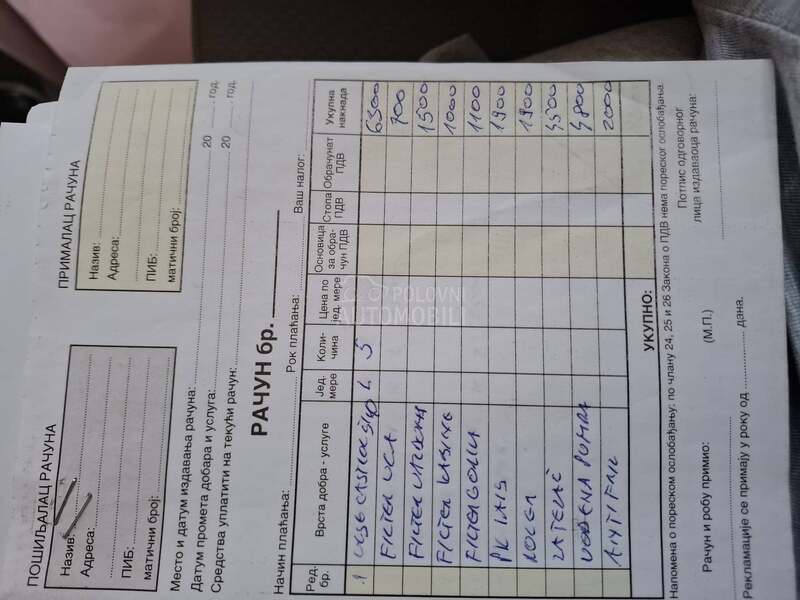 ПОШИЉАЛАЦ РАЧУНА
Назив:
Адреса:
ПИБ:
матични број:
ПРИМАЛАЦ РАЧУНА
Назив:
Адреса:
ПИБ:
матични број:
Место и датум издавања рачуна: 20 год.
Датум промета добара и услуга: 20 год.
Средства уплатити на текући рачун:
РАЧУН бр.
Начин плаћања: Рок плаћања: Ваш налог:
Ред. бр. Врста добра - услуге Јед. мере Коли- чина Цена по јед. мере Основица за обра- чун ПДВ Стопа ПДВ Обрачунат ПДВ Укупна накнада
1 L 5 6300
FILTER ULA 700
FILTER 1500
FILTER 1000
FILTER GORIVA 1100
PK 1900
1900
ZATEZAČ 4500
VODENA PUMPA 4800
2000
УКУПНО:
Напомена о пореском ослобађању: по члану 24, 25 и 26 Закона о ПДВ нема пореског ослобађања.
Рачун и робу примио: (М.П.) Потпис одговорног
лица издаваоца рачуна:
Рекламације се примају у року од дана.
POLOVNI
AUTOMOBILI